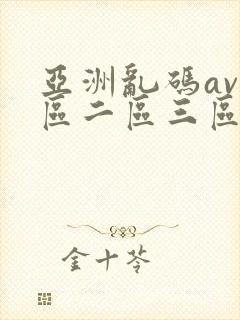 亞洲亂碼av
區二區三區
金十苓